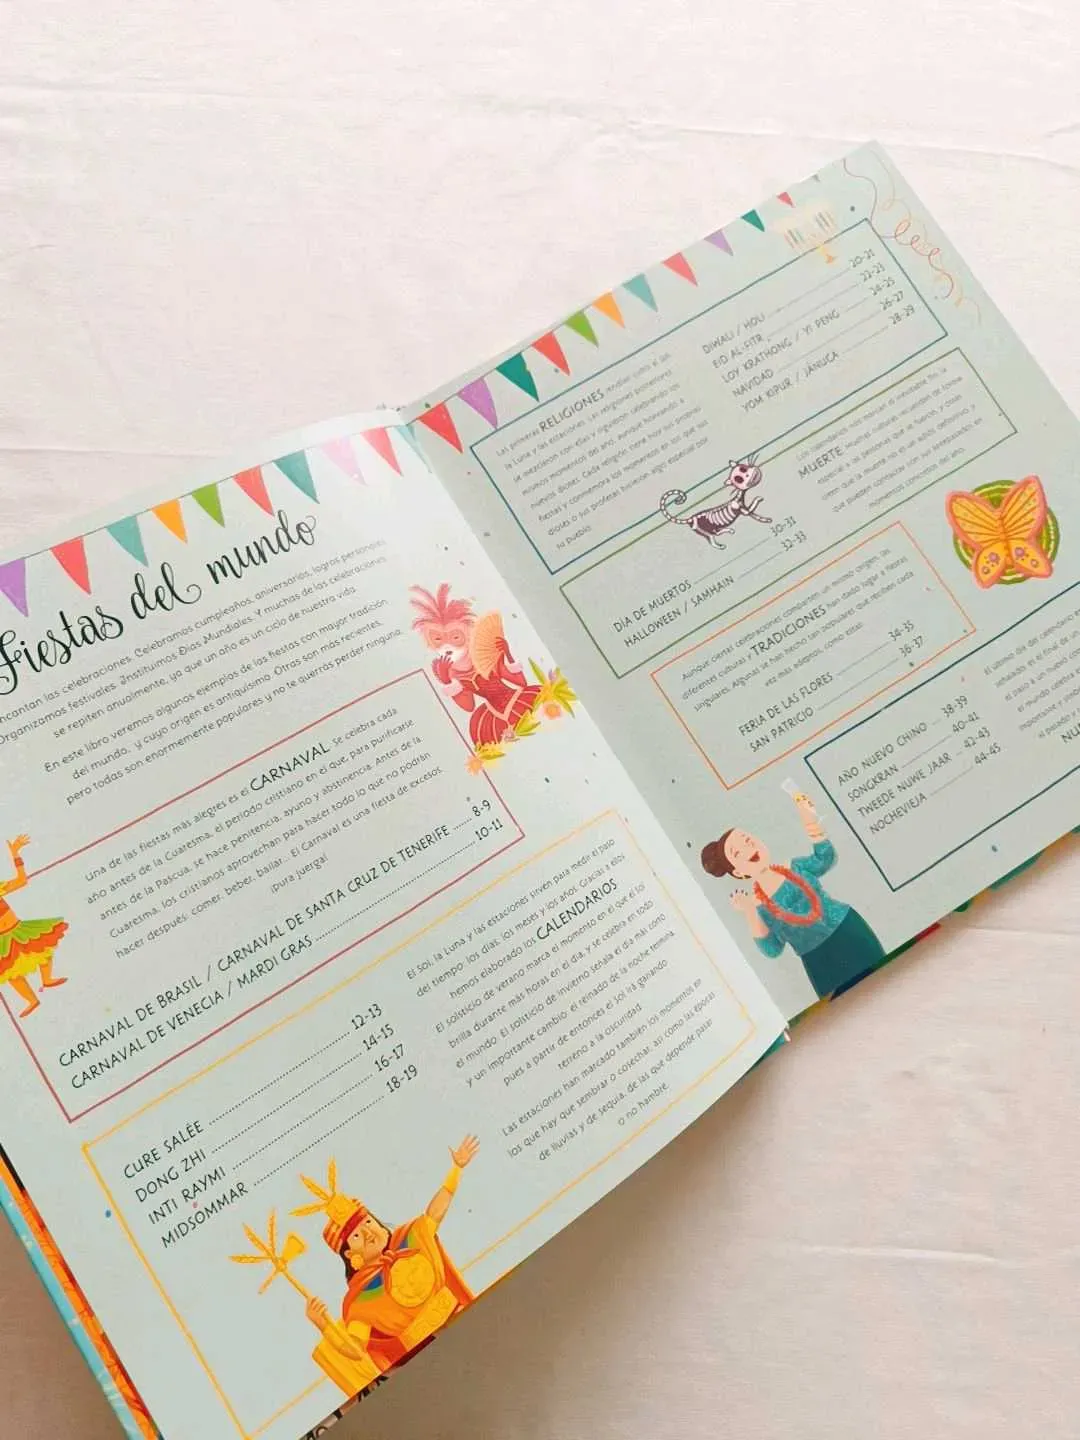 Fiestas del mundo
encantan las celebraciones. Celebramos cumpleaños, aniversarios, logros personales
Organizamos festivales. Instituimos Días Mundiales. Y muchas de las celebraciones
se repiten anualmente, ya que un año es un ciclo de nuestra vida.
En este libro veremos algunos ejemplos de las fiestas con mayor tradición
del mundo, y cuyo origen es antiquísimo. Otras son más recientes,
pero todas son enormemente populares y no te querrás perder ninguna.
Una de las fiestas más alegres es el CARNAVAL. Se celebra cada
año antes de la Cuaresma, el periodo cristiano en el que, para purificarse
antes de la Pascua, se hace penitencia, ayuno y abstinencia. Antes de la
Cuaresma, los cristianos aprovechan para hacer todo lo que no podrán
hacer después: comer, beber, bailar... El Carnaval es una fiesta de excesos.
¡pura juerga!
CARNAVAL DE BRASIL / CARNAVAL DE SANTA CRUZ DE TENERIFE 8-9
CARNAVAL DE VENECIA / MARDI GRAS 10-11
CURE SALÉE 12-13
DONG ZHI 14-15
INTI RAYMI 16-17
MIDSOMMAR 18-19
El Sol, la Luna y las estaciones sirven para medir el paso
del tiempo: los días, los meses y los años. Gracias a ellos
hemos elaborado los CALENDARIOS.
El solsticio de verano marca el momento en el que el Sol
brilla durante más horas en el día, y se celebra en todo
el mundo. El solsticio de invierno señala el día más corto
y un importante cambio: el reinado de la noche se termina
pues a partir de entonces el sol irá ganando
terreno a la oscuridad.
Las estaciones han marcado también los momentos en
los que hay que sembrar o cosechar, así como las épocas
de lluvias y de sequía, de las que depende pasar
o no hambre.
Las primeras RELIGIONES rendían culto al Sol,
la Luna y las estaciones. Las religiones posteriores
se mezclaron con ellas y siguieron celebrando los
mismos momentos del año, aunque honrando a
nuevos dioses. Cada religión tiene hoy sus propias
fiestas y conmemora los momentos en los que sus
dioses o sus profetas hicieron algo especial por
su pueblo.
DIWALI / HOLI 20-21
EID AL-FITR 22-23
LOY KRATHONG / YI PENG 24-25
NAVIDAD 26-27
YOM KIPUR / JÁNUCA 28-29
Los calendarios nos marcan el inevitable fin, la
MUERTE. Muchas culturas recuerdan de forma
especial a las personas que se fueron, y otras
creen que la muerte no es un adiós definitivo y
que pueden contactar con sus antepasados en
momentos concretos del año.
DÍA DE MUERTOS 30-31
HALLOWEEN / SAMHAIN 32-33
Aunque ciertas celebraciones comparten un mismo origen, las
diferentes culturas y TRADICIONES han dado lugar a fiestas
singulares. Algunas se han hecho tan populares que reciben cada
vez más adeptos, como estas:
FERIA DE LAS FLORES 34-35
SAN PATRICIO 36-37
AÑO NUEVO CHINO 38-39
SONGKRAN 40-41
TWEEDE NUWE JAAR 42-43
NOCHEVIEJA 44-45
El último día del calendario e
señalado: es el final de un
el paso a un nuevo co
el mundo celebra e
importante y
el pasado y
NU